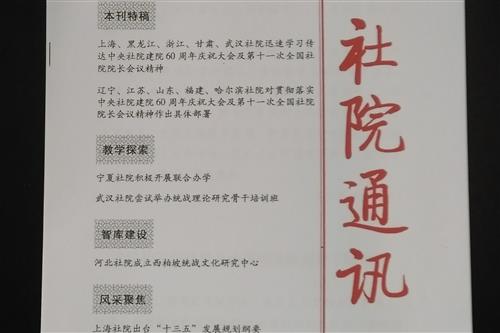 本刊特稿
上海、黑龙江、浙江、甘肃、武汉社院迅速学习传
达中央社院建院60周年庆祝大会及第十一次全国社
院院长会议精神
辽宁、江苏、山东、福建、哈尔滨社院对贯彻落实
中央社院建院60周年庆祝大会及第十一次全国社院
院长会议精神作出具体部署
教学探索
宁夏社院积极开展联合办学
武汉社院尝试举办统战理论研究骨干培训班
智库建设
河北社院成立西柏坡统战文化研究中心
风采聚焦
上海社院出台“十三五”发展规划纲要
社院通讯